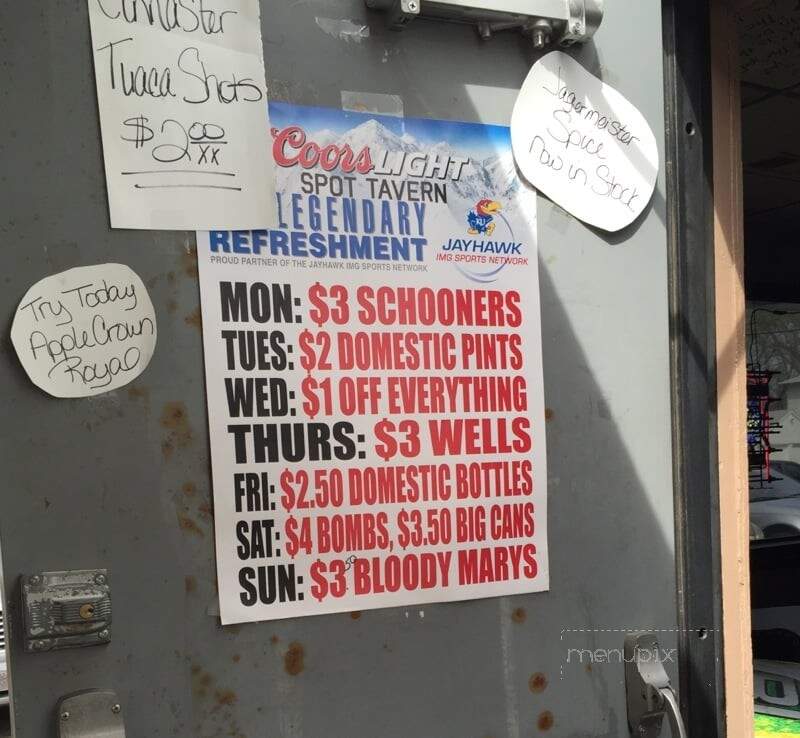 Tuaca Shots
$2.00
xx
Jagermeister
Spice
now in Stock
Try Today
Apple Crown
Royal
Coors LIGHT
SPOT TAVERN
LEGENDARY
REFRESHMENT
PROUD PARTNER OF THE JAYHAWK IMG SPORTS NETWORK
KU
JAYHAWK
IMG SPORTS NETWORK
MON: $3 SCHOONERS
TUES: $2 DOMESTIC PINTS
WED: $1 OFF EVERYTHING
THURS: $3 WELLS
FRI: $2.50 DOMESTIC BOTTLES
SAT: $4 BOMBS, $3.50 BIG CANS
SUN: $3.50 BLOODY MARYS
menupix